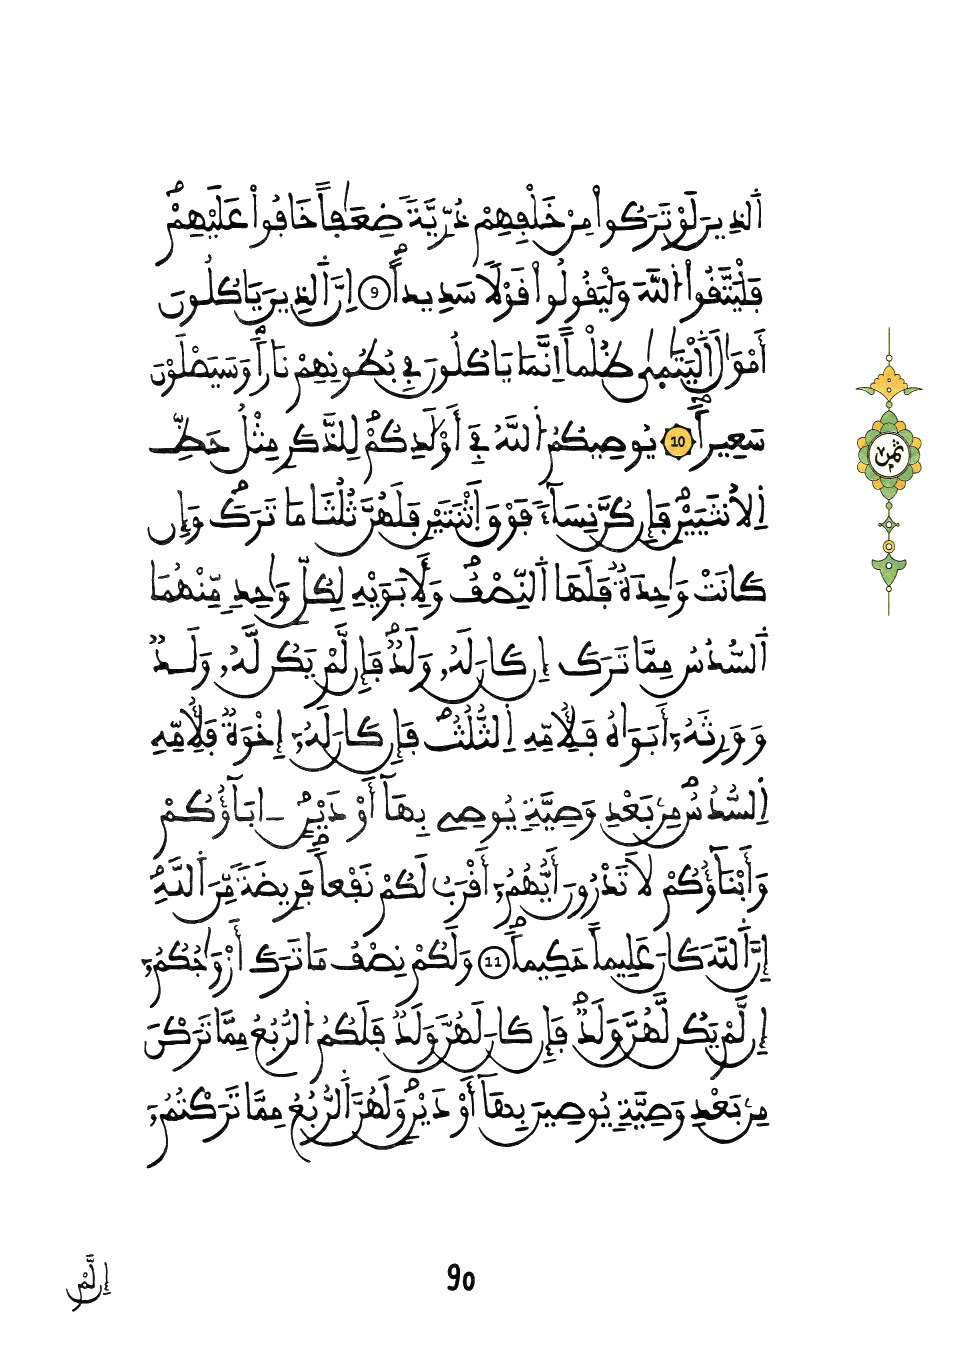 اَلذِينَ لَوْ تَرَكُواْ مِنْ خَلْفِهِمْ ذُرِّيَّةٗ ضِعَٰفاً خَافُواْ عَلَيْهِمْۖ
فَلْيَتَّقُواْ اُللَّهَ وَلْيَقُولُواْ قَوْلٗا سَدِيداًۖ 9 إِنَّ اَلذِينَ يَاكُلُونَ
أَمْوَٰلَ اَلْيَتَٰمَىٰ ظُلْماً اِنَّمَا يَاكُلُونَ فِے بُطُونِهِمْ نَاراٗۖ وَسَيَصْلَوْنَ
سَعِيراٗۖ 10 يُوصِيكُمُ اُللَّهُ فِے أَوْلَٰدِكُمْۖ لِلذَّكَرِ مِثْلُ حَظِّ
اِلْأُنثَيَيْنِۖ فَإِن كُنَّ نِسَآءٗ فَوْقَ اَثْنَتَيْنِ فَلَهُنَّ ثُلُثَا مَا تَرَكَۖ وَإِن
كَانَتْ وَٰحِدَةٞ فَلَهَا اَلنِّصْفُۖ وَلِأَبَوَيْهِ لِكُلِّ وَٰحِدٖ مِّنْهُمَا
اَلسُّدُسُ مِمَّا تَرَكَ إِن كَانَ لَهُۥ وَلَدٞۖ فَإِن لَّمْ يَكُن لَّهُۥ وَلَدٞ
وَوَرِثَهُۥٓ أَبَوَاهُ فَلِأُمِّهِ اِلثُّلُثُۖ فَإِن كَانَ لَهُۥٓ إِخْوَةٞ فَلِأُمِّهِ
اِلسُّدُسُۖ مِنۢ بَعْدِ وَصِيَّةٖ يُوصِے بِهَآ أَوْ دَيْنٍۖ ـ ابَآؤُكُمْ
وَأَبْنَآؤُكُمْ لَا تَدْرُونَ أَيُّهُمُۥٓ أَقْرَبُ لَكُمْ نَفْعاٗۖ فَرِيضَةٗ مِّنَ اَللَّهِۖ
إِنَّ اَللَّهَ كَانَ عَلِيماً حَكِيماٗۖ 11 وَلَكُمْ نِصْفُ مَا تَرَكَ أَزْوَٰجُكُمُۥٓ
إِن لَّمْ يَكُن لَّهُنَّ وَلَدٞۖ فَإِن كَانَ لَهُنَّ وَلَدٞ فَلَكُمُ اُلرُّبُعُ مِمَّا تَرَكْنَ
مِنۢ بَعْدِ وَصِيَّةٖ يُوصِينَ بِهَآ أَوْ دَيْنٖۖ وَلَهُنَّ اَلرُّبُعُ مِمَّا تَرَكْتُمُۥٓ
ثمن
90
إِن لَّمْ